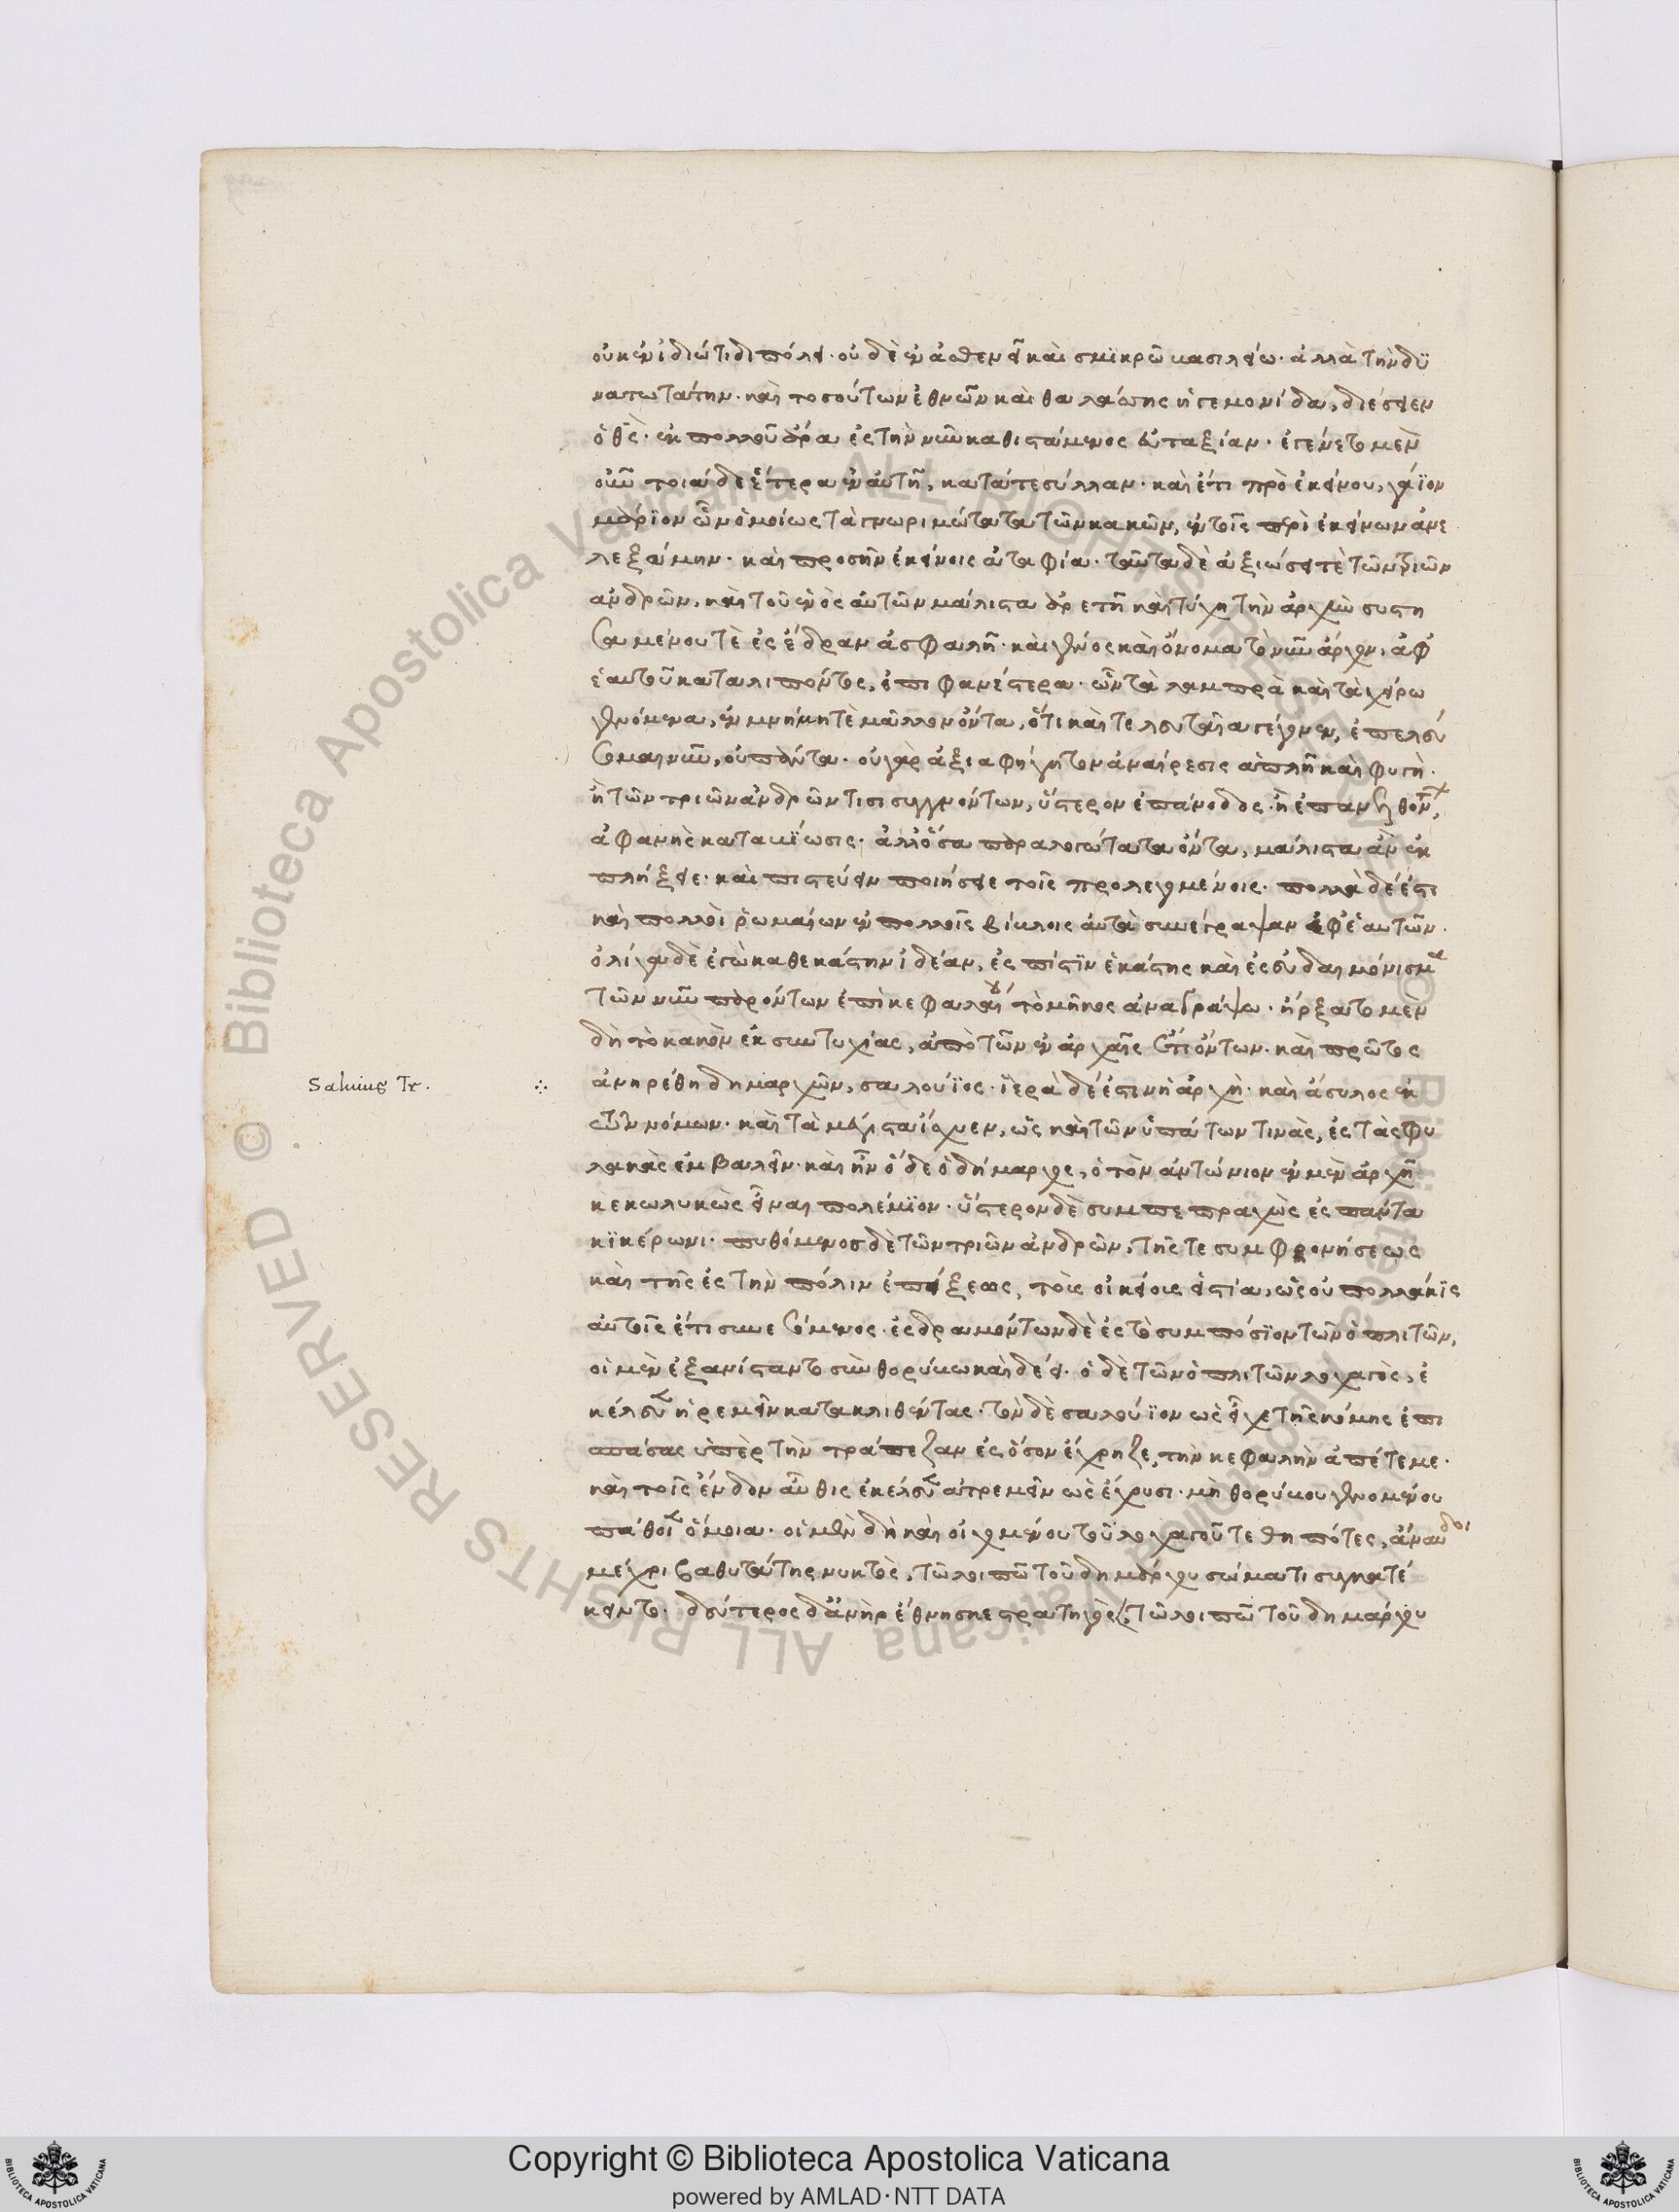 οὐκ ἐν ἰδιώτιδι πόλει· οὐδὲ ἐν ἀσθενεῖ καὶ σμϊκρῶ βασιλείω· ἀλλὰ τὴν δϋ
νατωτάτην· καὶ τοσούτων ἐθνῶν καὶ θαλάσσης ἡγεμονίδα, διέσεισεν
ὁ θς̅· ἐκ πολλοῦ ἄρα ἐς τὴν νῦν καθιστάμενος εὐταξίαν· ἐγένετο μὲν
οὖν τοιάδε ἕτερα ἐν αὐτῆ, κατά τε σύλλαν· καὶ ἔτι πρὸ ἐκείνου, γάϊον
μάριον ὧν ὁμοίως τὰ γνωριμώτατα τῶν κακῶν, ἐν τοῖς περὶ ἐκείνων ἀνε
λεξάμην· καὶ προσῆν ἐκείνοις ἀταφία· ταῦτα δὲ ἀξιώσει τὲ τῶν τριῶν
ἀνδρῶν, καὶ τοῦ ἑνὸς αὐτῶν μάλιστα ἀρετῆ καὶ τύχη τὴν ἀρχὴν συστη
σαμένου τὲ ἐς ἕδραν ἀσφαλῆ· καὶ γένος καὶ ὄνομα τὸ νῦν ἄρχον, ἀφ'
ἑαυτοῦ καταλιπόντος, ἐπιφανέστερα· ὧν τὰ λαμπρὰ καὶ τὰ χείρω
γενόμενα, ἐν μνήμη τὲ μᾶλλον ὄντα, ὅτι καὶ τελευταῖα γέγονεν, ἐπελεύ
σομαι νῦν, οὐ πάντα· οὐ γὰρ ἀξιαφήγητον ἀναίρεσις ἁπλῆ καὶ φυγὴ·
ἢ τῶν τριῶν ἀνδρῶν τισι συγγνόντων, ὕστερον ἐπάνοδος· ἢ ἐπανελθόντων,
ἀφανὴς καταβίωσις· ἀλλ' ὅσα παραλογώτατα ὄντα, μάλιστα ἂν ἐκ
πλήξειε· καὶ πιστεύειν ποιήσειε τοῖς προλεγομένοις· πολλὰ δέ ἐστι
καὶ πολλοὶ ῥωμαίων ἐν πολλοῖς βίβλοις αὐτὰ συνέγραψαν ἐφ' ἑαυτῶν·
ὀλίγα δὲ ἐγὼ καθ' ἑκάστην ἰδέαν, ἐς πίστϊν ἑκάστης καὶ ἐς εὐδαιμόνισμα
τῶν νῦν παρόντων ἐπὶ κεφαλαίου τὸ μῆκος ἀναγράψω· ἤρξατο μὲν
δὴ τὸ κακὸν ἐκ συντυχίας, ἀπὸ τῶν ἐν ἀρχαῖς ἔτι ὄντων· καὶ πρῶτος
ἀνηρέθη δημαρχῶν, σαλούϊος· ἱερὰ δέ ἐστιν ἡ ἀρχὴ· καὶ ἄσυλος ἐκ
Salvius Tr.
τῶν νόμων· καὶ τὰ μέγιστα ἴσχυεν, ὡς καὶ τῶν ὑπάτων τινὰς, ἐς τὰς φυ
λακὰς ἐμβαλεῖν· καὶ ἦν ὅδε ὁ δήμαρχος, ὁ τὸν ἀντώνιον ἐν μὲν ἀρχῆ
κεκωλυκὼς εἶναι πολέμϊον· ὕστερον δὲ συμπεπραχὼς ἐς πάντα
κϊκέρωνι· πυθόμενος δὲ τῶν τριῶν ἀνδρῶν, τῆς τε συμφρονήσεως
καὶ τῆς ἐς τὴν πόλιν ἐπείξεως, τοὺς οἰκείους εἱστία, ὡς οὐ πολλάκϊς
αὐτοῖς ἔτι συνεσόμενος· ἐσδραμόντων δὲ ἐς τὸ συμπόσϊον τῶν ὁπλιτῶν,
οἱ μὲν ἐξανίσταντο σὺν θορύβω καὶ δέει· ὁ δὲ τῶν ὁπλιτῶν λοχαγὸς, ἐ
κέλευεν ἠρεμεῖν κατακλιθέντας· τὸν δὲ σαλούϊον ὡς εἶχε τῆς κόμης ἐπι
σπάσας ὑπὲρ τὴν τράπεζαν ἐς ὅσον ἔχρηζε, τὴν κεφαλὴν ἀπέτεμε·
καὶ τοῖς ἔνδον αὖθις ἐκέλευεν ἀτρεμεῖν ὡς ἔχουσι· μὴ θορύβου γενομένου
πάθοιεν ὅμοια· οἱ μὲν δὴ καὶ οἰχομένου τοῦ λοχαγοῦ τεθηπότες, ἄναυδοι
μέχρι βαθυτάτης νυκτὸς, τῶ λοιπῶ τοῦ δημάρχου σώματι συγκατέ
κειντο· δεύτερος δ' ἀνὴρ ἔθνησκε στρατηγὸς, τῶ λοιπῶ τοῦ δημάρχου
Copyright © Biblioteca Apostolica Vaticana
powered by AMLAD·NTT DATA